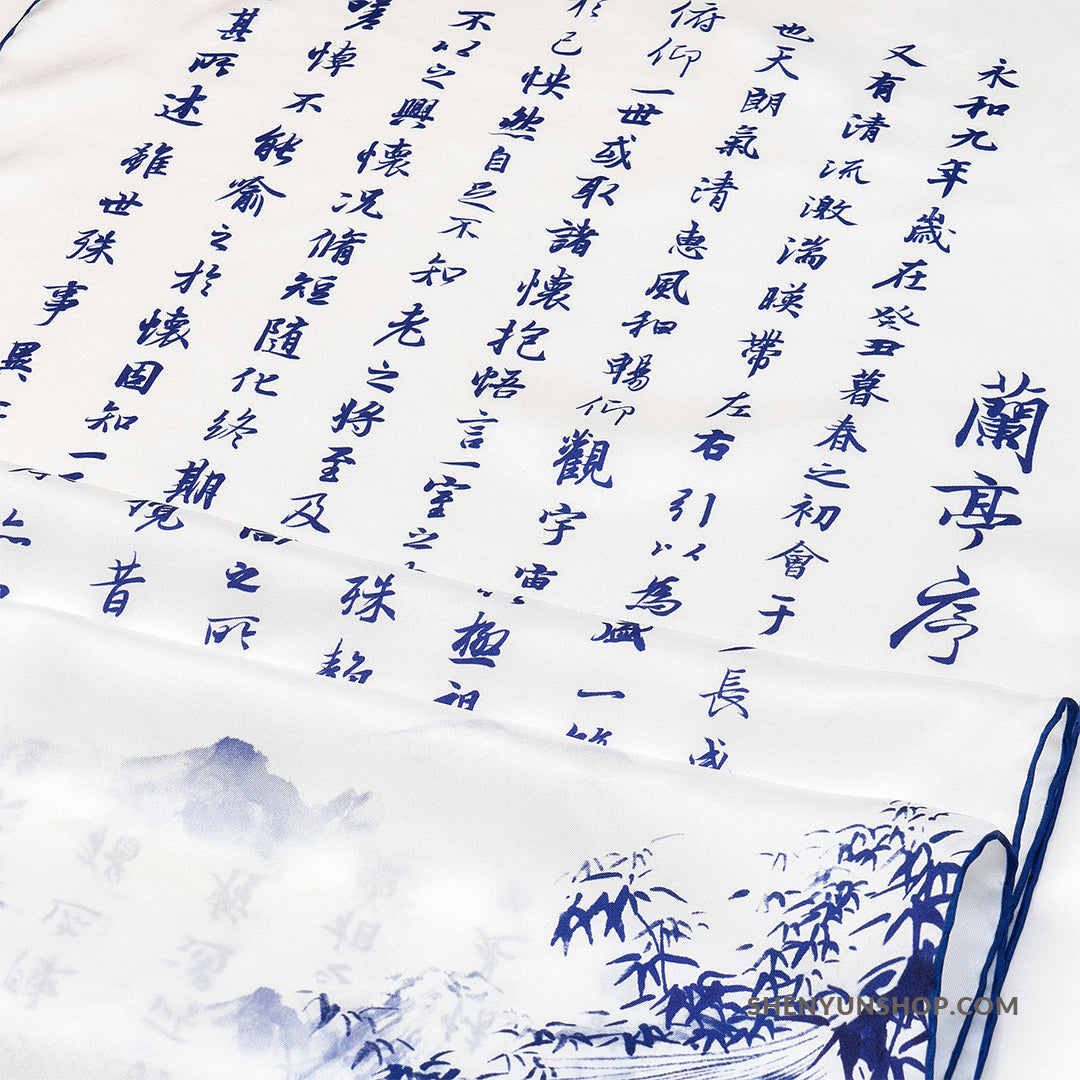 蘭亭序
永和九年歲在癸丑暮春之初會于長咸
又有清流激湍暎帶左右引以為盛一
也天朗氣清惠風和暢仰觀宇宙極視
俯仰一世或取諸懷抱悟言一室之殊
於己怏然自足不知老之將至及之所
不以之興懷況脩短隨化終期昔
嗟悼不能喻之於懷固知一
其所述雖世殊事異
SHENYUNSHOP.COM